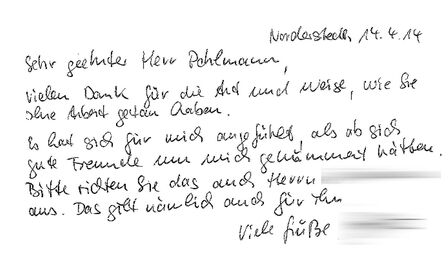 Norderstedt, 14.4.14
Sehr geehrter Herr Pohlmann,
vielen Dank für die Art und Weise, wie Sie
Ihre Arbeit getan haben.
Es hat sich für mich angefühlt, als ob sich
gute Freunde um mich gekümmert hätten.
Bitte richten Sie das auch Herrn
aus. Das gilt nämlich auch für ihn
Viele Grüße